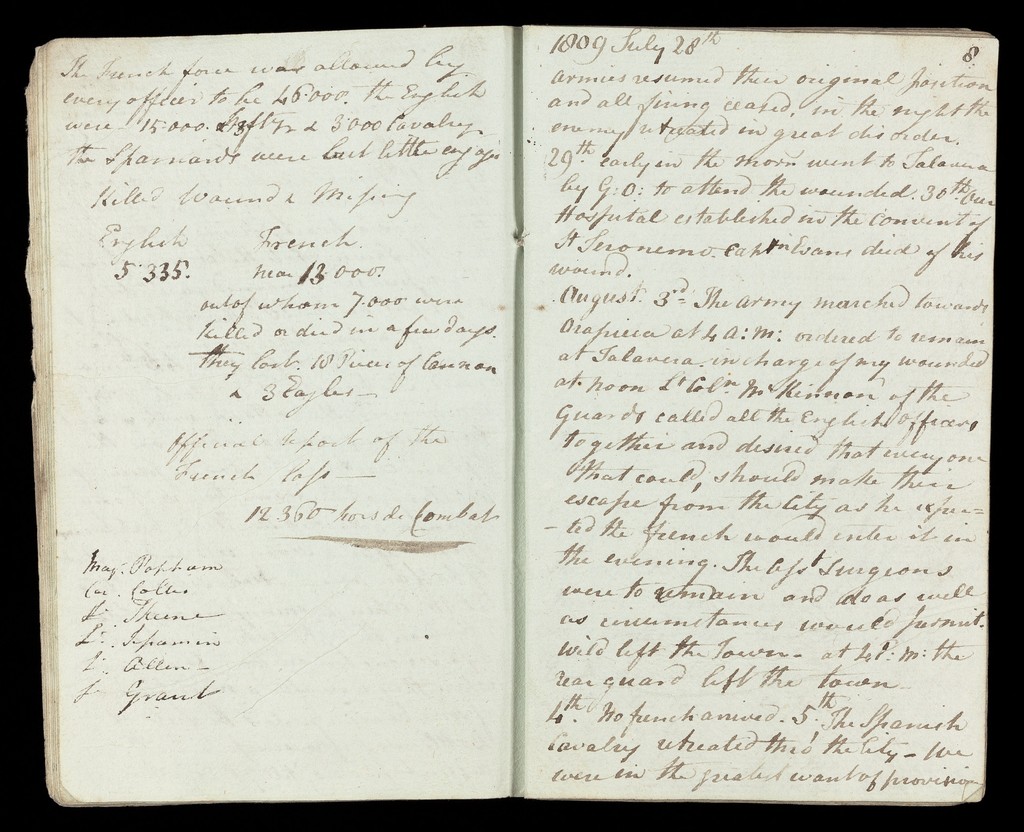 The French force was allowed by
every officer to be 46000. the English
were 15.000. & 3000 Cavalry
the Spaniards were but little engaged
Killed Wound & Missing
English French.
5.335. near 13.000.
out of whom 7.000 were
Killed or died in a few days.
they lost. 18 Pieces of Cannon
& 3 Eagles
Official report of the
French loss
12360 hors de Combat
Maj. Popham
Coller
Lt.
Lt.
Lt. Allen
Lt. Grant
1809 July 28th
8
armies resumed their original position
and all firing ceased, in the night the
enemy retreated in great disorder.
29th. early in the morn went to Talavera
by G: O: to attend the wounded. 30th. Our
Hospital established in the Convent of
St Jeronemo. Captn Evans died of his
wound.
August. 3rd. The army marched towards
Orapesa at 4 A: M: ordered to remain
at Talavera in charge of my wounded
at noon Lt Coln McKinnon of the
Guards called all the English officers
together and desired that every one
that could, should make their
escape from the City as he expec=
-ted the french would enter it in
the evening. The Asst. Surgeons
were to remain and do as well
as circumstances would permit.
Wild left the Town - at 4 P: M: the
rear guard left the town
4th. No french arrived. 5th. The Spanish
Cavalry retreated thro' the City - We
were in the greatest want of provision